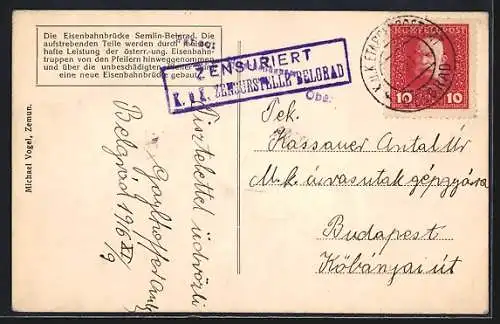 Die Eisenbahnbrücke Semlin-Belgrad. Die
aufstrebenden Teile werden durch
hafte Leistung der österr.-ung. Eisenbahn-
truppen von den Pfeilern hinweggenommen
und über die unbeschädigten Pfeiler
eine neue Eisenbahnbrücke gebaut.
Michael Vogel, Zemun.
ZENSURIERT
K. u. K. ZENSURSTELLE BELGRAD
Obe:
K.U.K. ETAPPENPOSTAMT
BELGRAD
K.U.K. FELDPOST
10 10
Tisztelettel üdvözli
Belgrád 1916 XI/9
Tek.
Kassauer Antal Úr
M. k. államvasutak gépgyára
Budapest
Kőbányai út